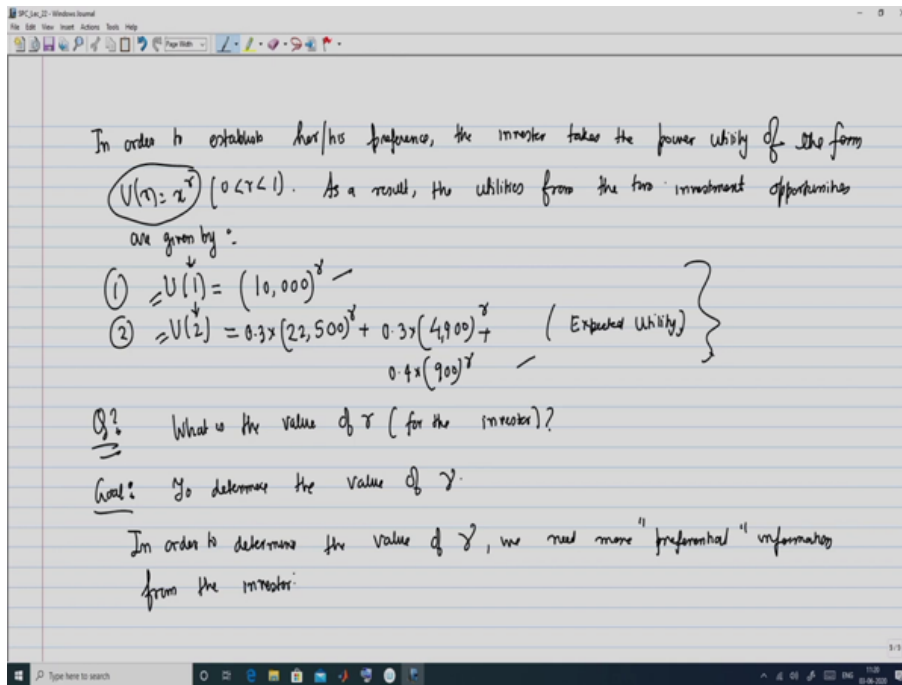 SPC_Lec_22 - Windows Journal
File Edit View Insert Actions Tools Help
Page Width
In order to establish her/his preference, the investor takes the power utility of the form
U(x) = x^γ (0<γ<1). As a result, the utilities from the two investment opportunities
are given by :
① U(1) = (10,000)^γ
② U(2) = 0.3×(22,500)^γ + 0.3×(4,900)^γ + (Expected Utility)
0.4×(900)^γ
Q? What is the value of γ (for the investor)?
Goal: To determine the value of γ.
In order to determine the value of γ, we need more "preferential" information
from the investor.
Type here to search
ENG
11:20
03-06-2020